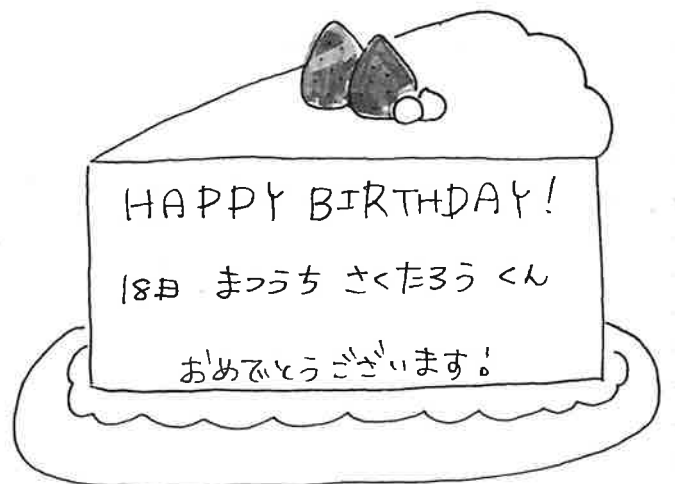 HAPPY BIRTHDAY!
18日 まつうち さくたろう くん
おめでとうございます!